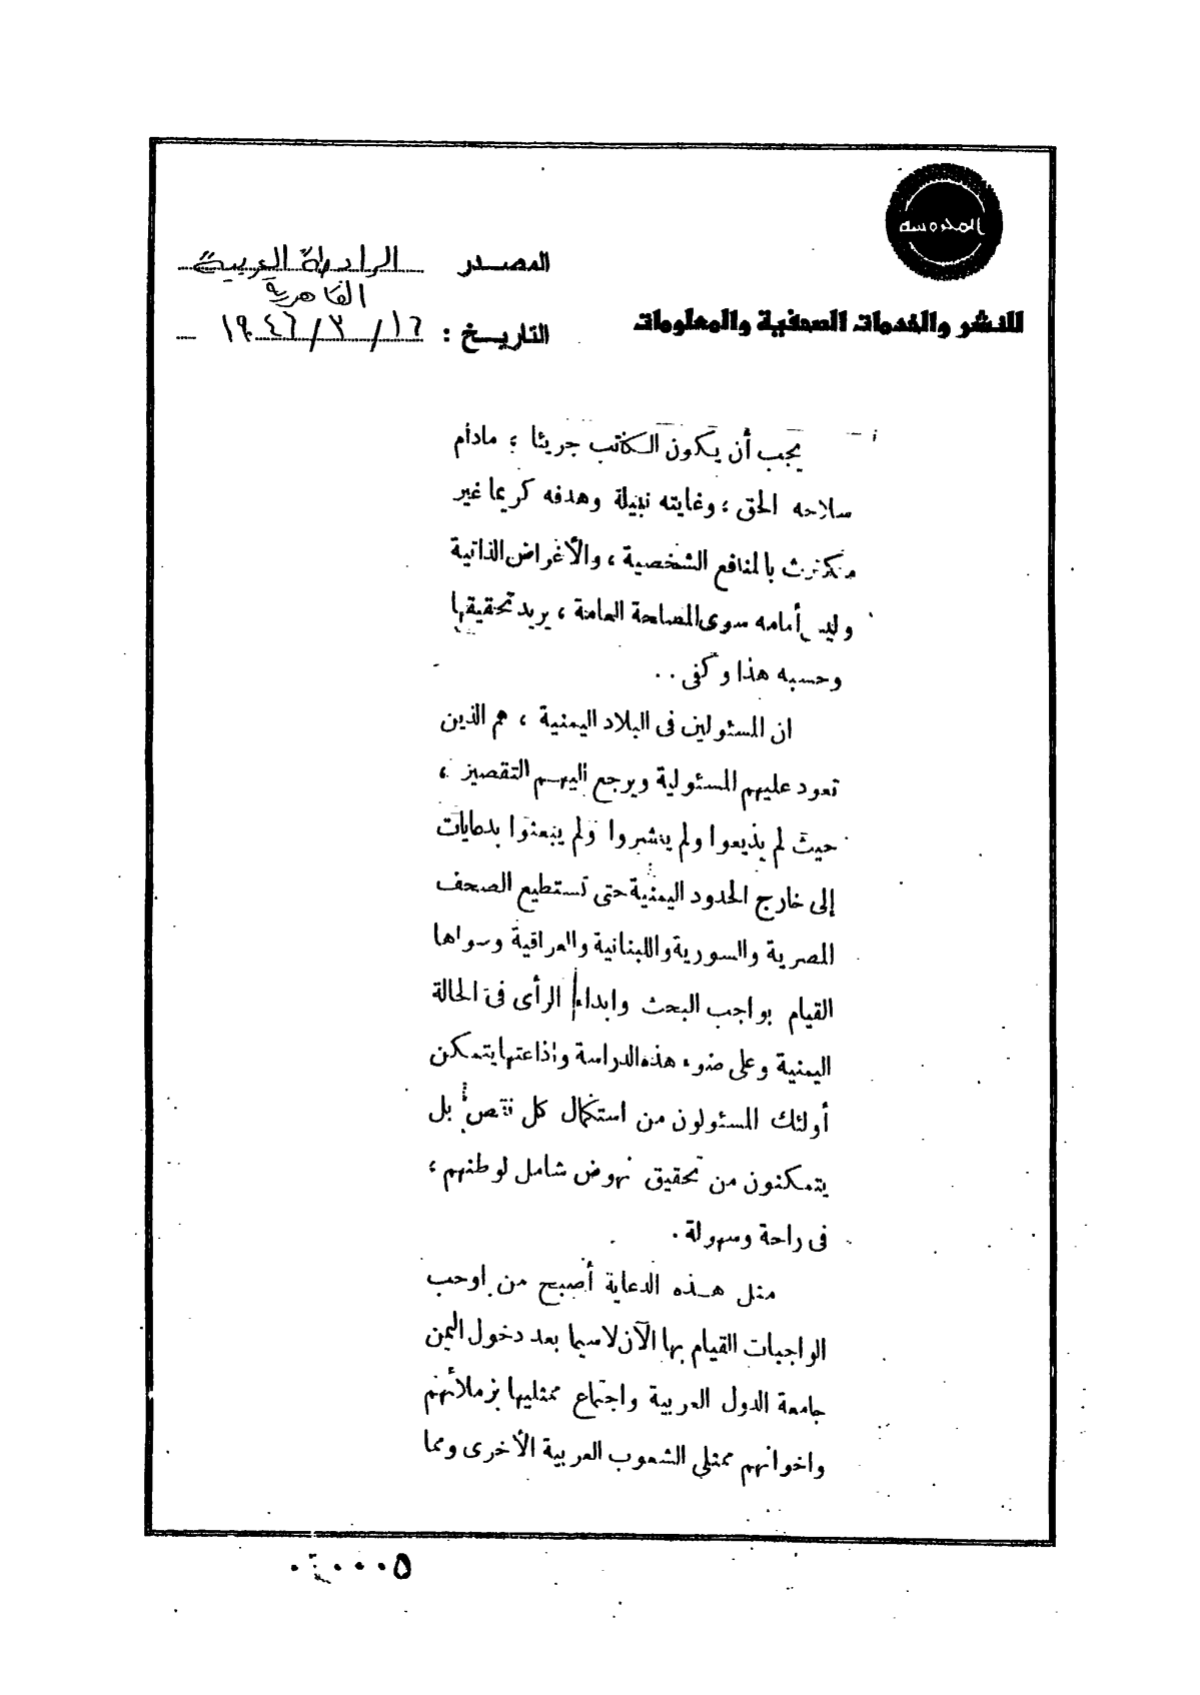 المحروسة
للنشر والخدمات الصحفية والمعلومات
المصدر الرابطة العربية
القاهرية
التاريخ : ١٦/٣/١٩٤٦
يجب أن يكون الكاتب جريئا ؛ مادام
سلاحه الحق ؛ وغايته نبيلة وهدفه كريما غير
مكترث بالمنافع الشخصية ، والأغراض الذاتية
وليس أمامه سوى المصلحة العامة ، يريد تحقيقها
وحسبه هذا وكفى ..
ان المسئولين فى البلاد اليمنية ، هم الذين
تعود عليهم المسئولية ويرجع اليهم التقصير ،
حيث لم يذيعوا ولم ينشروا ولم يبعثوا بدعايات
إلى خارج الحدود اليمنية حتى تستطيع الصحف
المصرية والسورية واللبنانية والعراقية وسواها
القيام بواجب البحث وابداء الرأى فى الحالة
اليمنية وعلى ضوء هذه الدراسة واذاعتها يتمكن
أولئك المسئولون من استكمال كل نقص بل
يتمكنون من تحقيق نهوض شامل لوطنهم ؛
فى راحة وسهولة .
مثل هذه الدعاية أصبح من اوجب
الواجبات القيام بها الآن لاسيما بعد دخول اليمن
جامعة الدول العربية واجتماع ممثليها بزملائهم
واخوانهم ممثلي الشعوب العربية الأخرى ومما